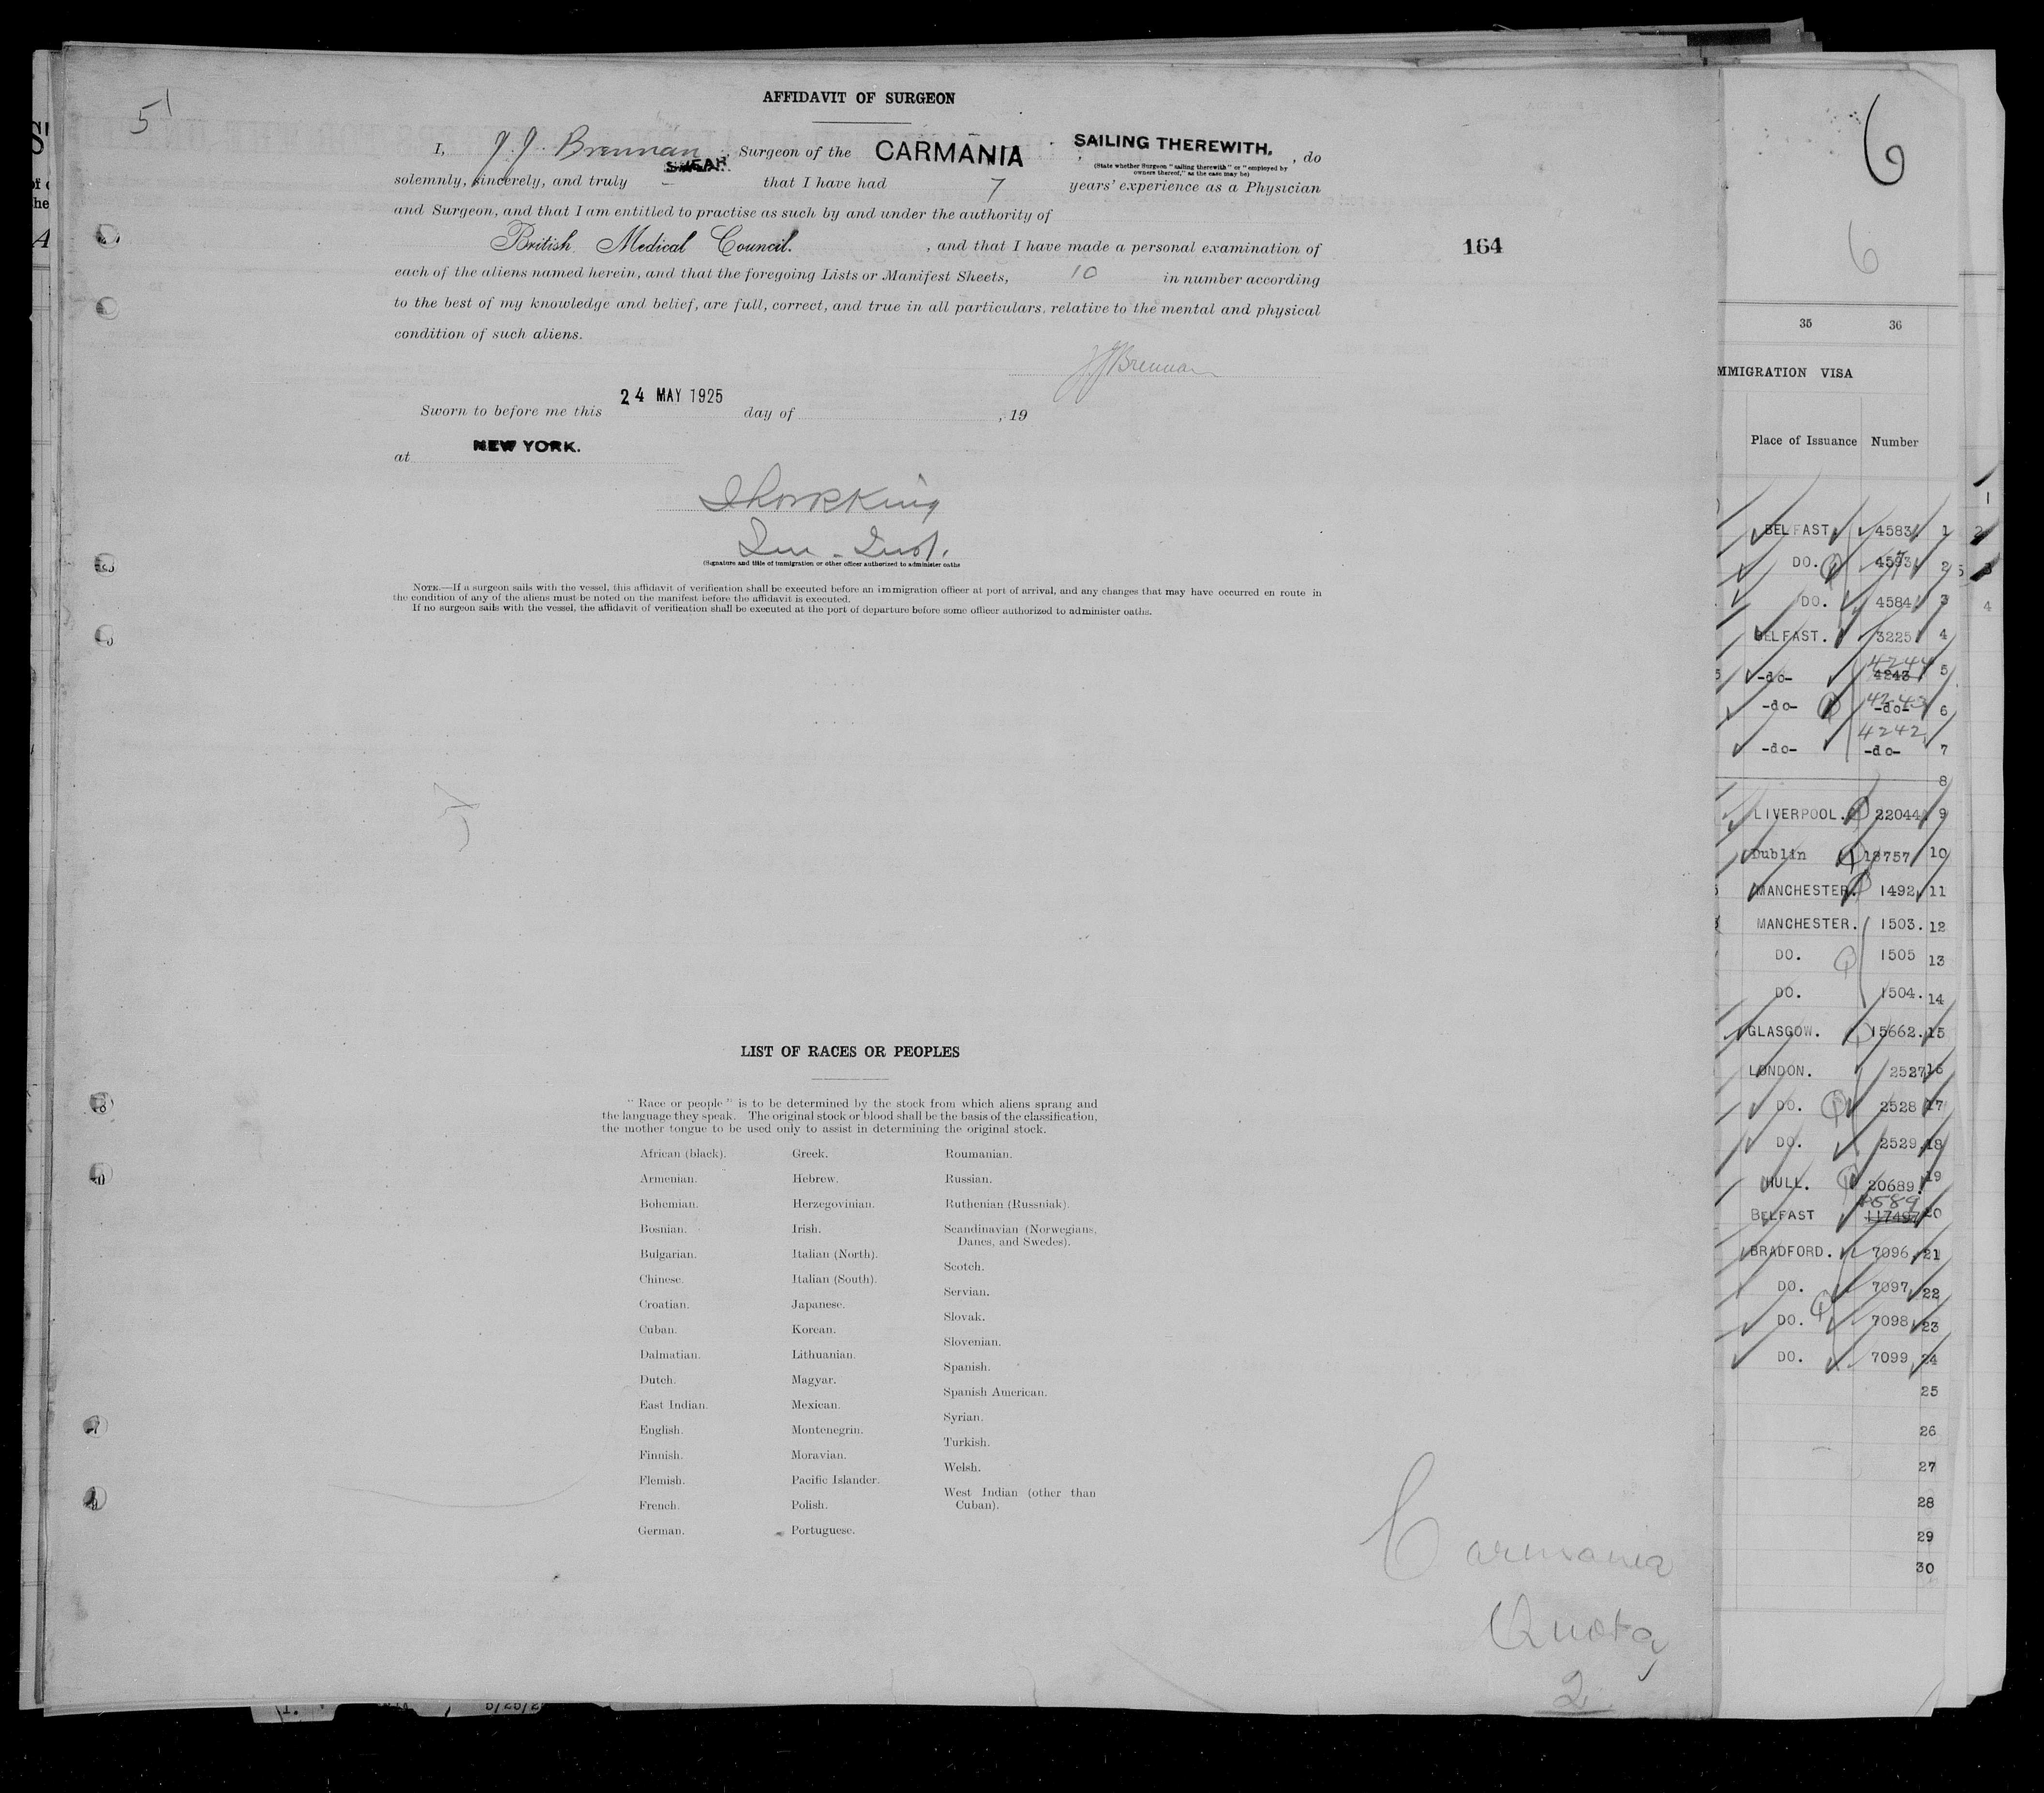 5
AFFIDAVIT OF SURGEON
I, J. J. Brennan, Surgeon of the CARMANIA, SAILING THEREWITH, , do
(State whether Surgeon "sailing therewith" or "employed by
owners thereof," as the case may be)
solemnly, sincerely, and truly SWEAR that I have had 7 years' experience as a Physician
and Surgeon, and that I am entitled to practise as such by and under the authority of
British Medical Council. , and that I have made a personal examination of
164
each of the aliens named herein, and that the foregoing Lists or Manifest Sheets, 10 in number according
to the best of my knowledge and belief, are full, correct, and true in all particulars, relative to the mental and physical
condition of such aliens.
JJBrennan
Sworn to before me this 24 MAY 1925 day of , 19
at NEW YORK.
(Signature and title of immigration or other officer authorized to administer oaths
NOTE.—If a surgeon sails with the vessel, this affidavit of verification shall be executed before an immigration officer at port of arrival, and any changes that may have occurred en route in
the condition of any of the aliens must be noted on the manifest before the affidavit is executed.
If no surgeon sails with the vessel, the affidavit of verification shall be executed at the port of departure before some officer authorized to administer oaths.
LIST OF RACES OR PEOPLES
"Race or people" is to be determined by the stock from which aliens sprang and
the language they speak. The original stock or blood shall be the basis of the classification,
the mother tongue to be used only to assist in determining the original stock.
African (black).
Armenian.
Bohemian.
Bosnian.
Bulgarian.
Chinese.
Croatian.
Cuban.
Dalmatian.
Dutch.
East Indian.
English.
Finnish.
Flemish.
French.
German.
Greek.
Hebrew.
Herzegovinian.
Irish.
Italian (North).
Italian (South).
Japanese.
Korean.
Lithuanian.
Magyar.
Mexican.
Montenegrin.
Moravian.
Pacific Islander.
Polish.
Portuguese.
Roumanian.
Russian.
Ruthenian (Russniak).
Scandinavian (Norwegians,
Danes, and Swedes).
Scotch.
Servian.
Slovak.
Slovenian.
Spanish.
Spanish American.
Syrian.
Turkish.
Welsh.
West Indian (other than
Cuban).
Carmania
Quota
2
6
6
35 36
MMIGRATION VISA
Place of Issuance Number
BELFAST 4583 1
DO. 2
DO. 4584 3
BELFAST. 3225 4
4244
-do- 4243 5
4243
-do- -do- 6
4242
-do- -do- 7
8
LIVERPOOL. 22044 9
Dublin 18757 10
MANCHESTER. 1492 11
MANCHESTER. 1503. 12
DO. 1505 13
DO. 1504. 14
GLASGOW. 15662. 15
LONDON. 2527 16
DO. 2528 17
DO. 2529 18
HULL. 20689 19
4589
BELFAST 117497 20
BRADFORD. 7096 21
DO. 7097 22
DO. 7098 23
DO. 7099 24
25
26
27
28
29
30